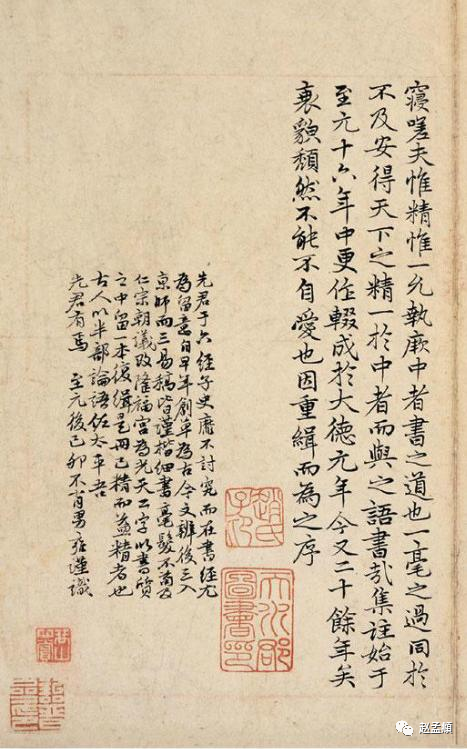 寢嗟夫惟精惟一允執厥中者書之道也一毫之過同於
不及安得天下之精一於中者而與之語書哉集註始于
至元十六年中更作輟成於大德元年今又二十餘年矣
衰貌頹然不能不自愛也因重緝而為之序
趙氏子昂
天水郡圖書印
先君于六經子史靡不討究而在書經尤
為留意自早年創草為古今文辨後三入
京師而三易稿皆謹楷細書毫髮不苟及
仁宗朝議改隆福宮為光天二字以書質
之中留一本復緝是冊已精而益精者也
古人以半部論語佐太平吾
先君有焉 至元後己卯不肖男雍謹識
赵孟頫